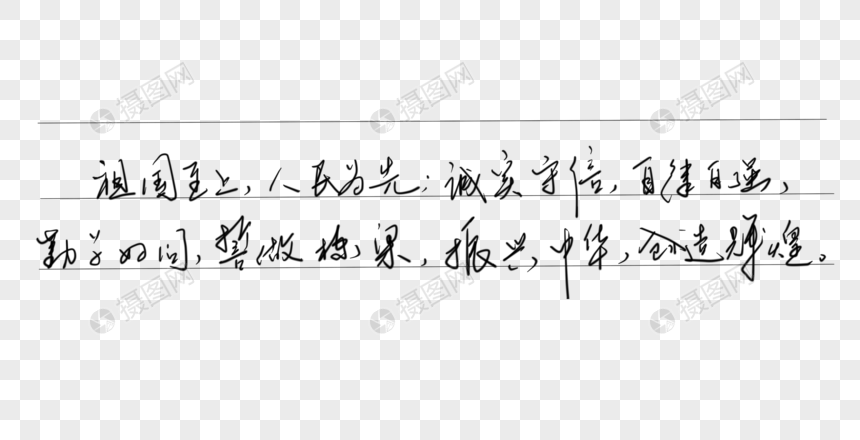 祖国至上，人民为先；诚实守信，自律自强，
勤学好问，誓做栋梁，振兴中华，创造辉煌。
摄图网
摄图网
摄图网
摄图网
摄图网
摄图网